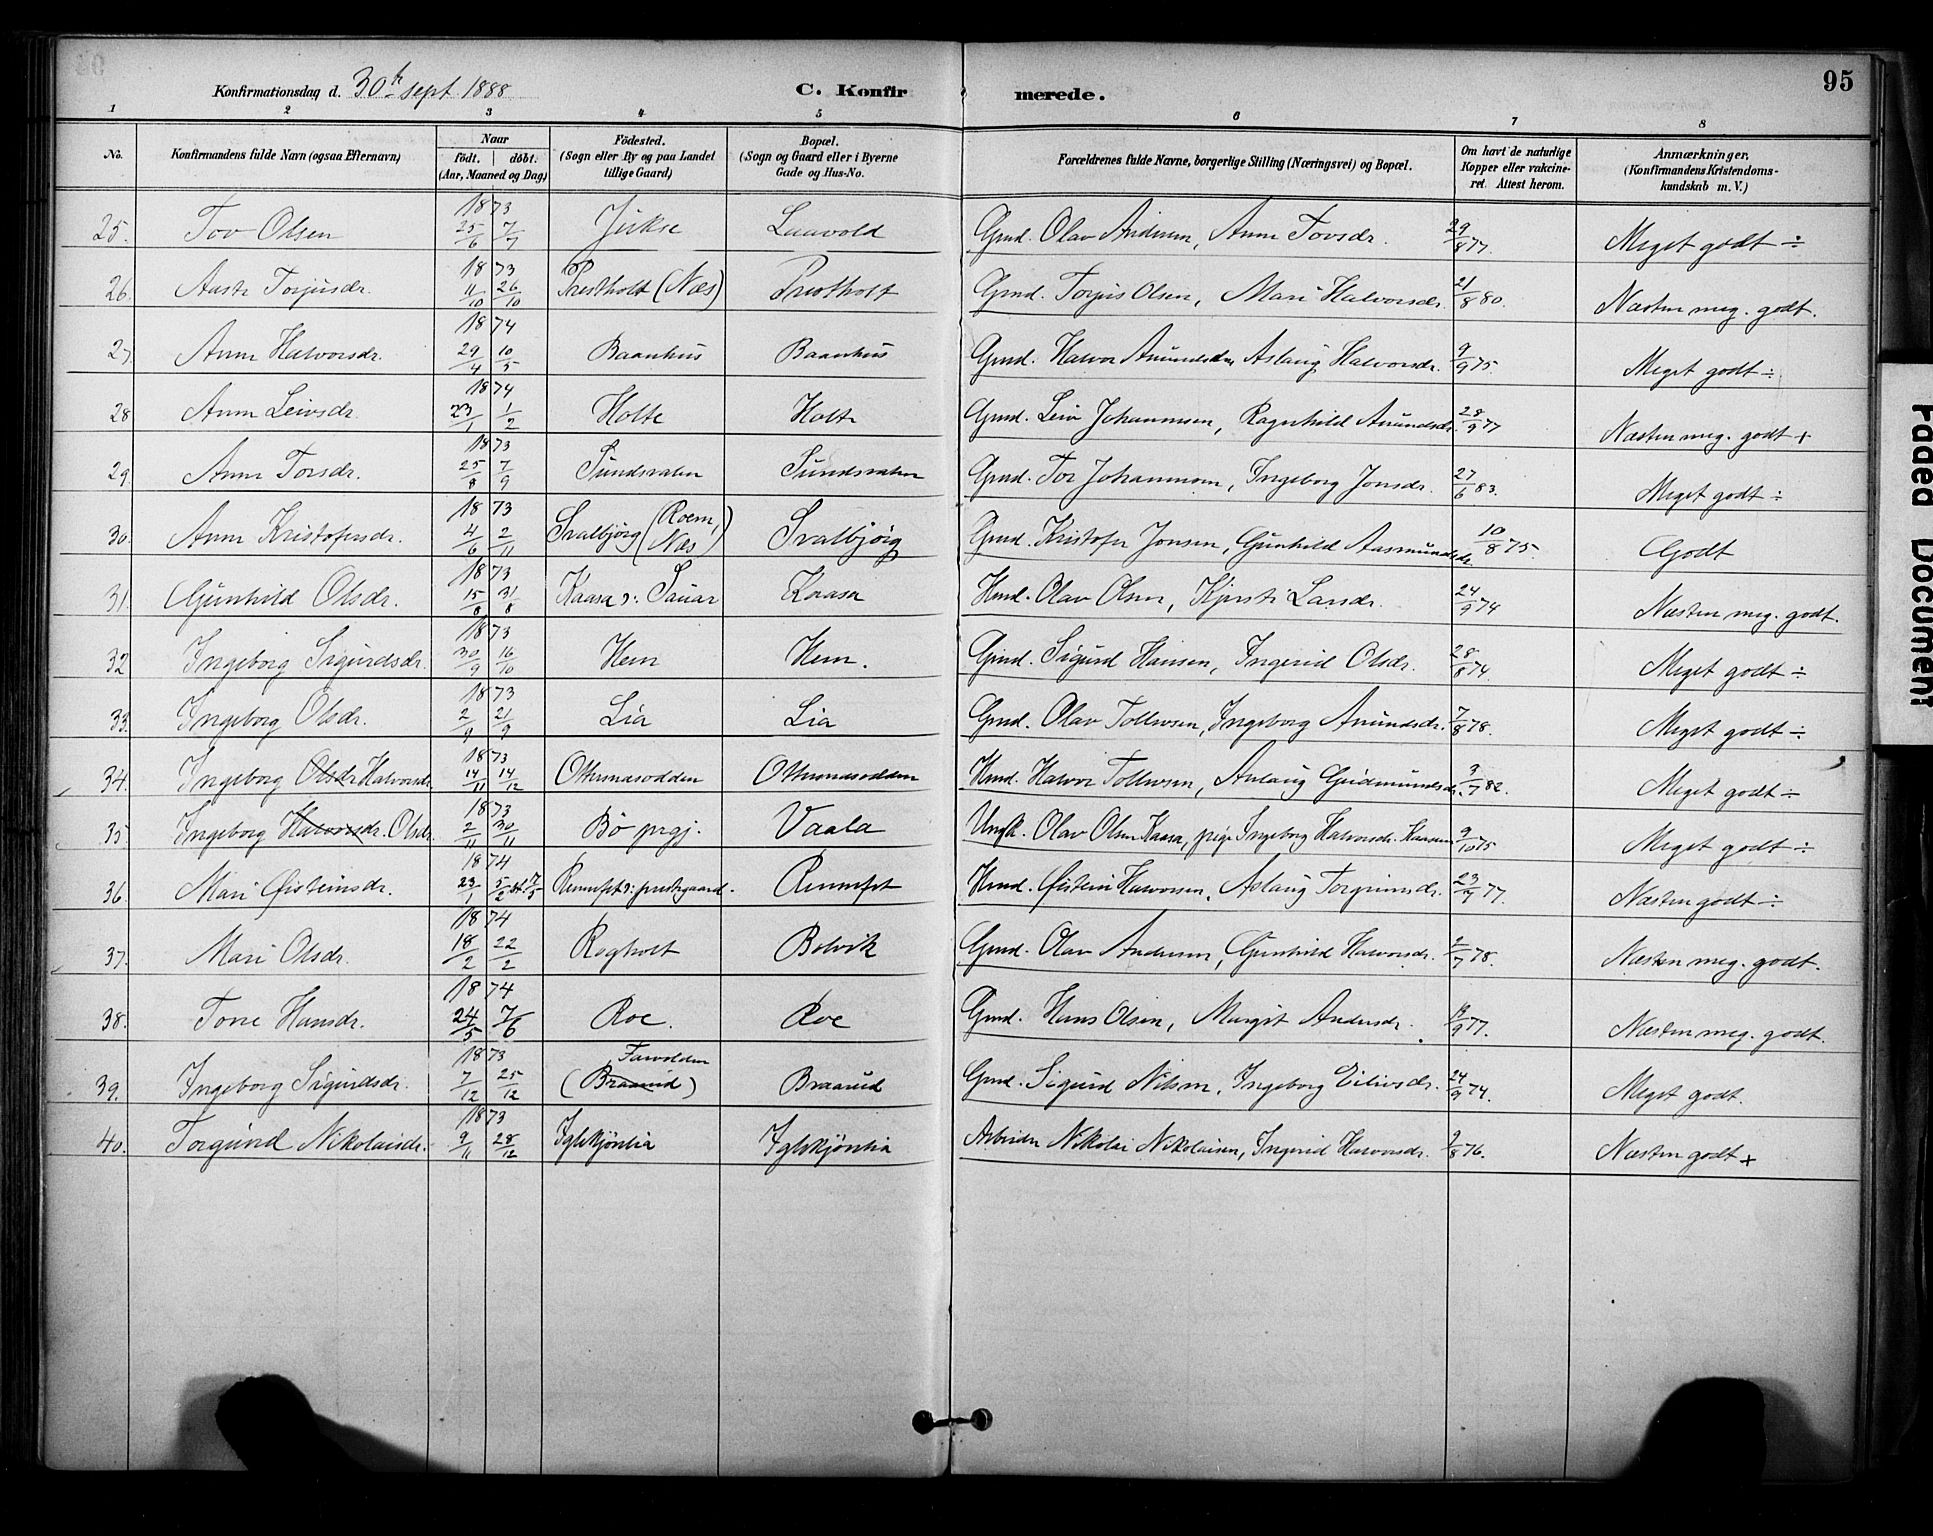 95
Konfirmationsdag d. 30te sept 1888
C. Konfirmerede.
1 2 3 4 5 6 7 8
No. | Konfirmandens fulde Navn (ogsaa Efternavn) | Naar födt. | döbt. (Aar, Maaned og Dag) | Födested. (Sogn eller By og paa Landet tillige Gaard) | Bopæl. (Sogn og Gaard eller i Byerne Gade og Hus-No. | Forældrenes fulde Navne, borgerlige Stilling (Næringsvei) og Bopæl. | Om havt de naturlige Kopper eller vakcineret. Attest herom. | Anmærkninger. (Konfirmandens Kristendomskundskab m. V.)
25. Tov Olsen 1873 25/6 7/7 Jukse Laavold Gmd. Olav Andersen, Anne Tovsdr. 29/8 77. Meget godt ÷
26. Aaste Torjusdr. 1873 11/10 26/10 Prestholt (Næs) Prestholt Gmd. Torjus Olsen, Mari Halvorsdr. 21/8 80. Næsten meg. godt.
27. Anne Halvorsdr. 1874 29/4 10/5 Baanhus Baanhus Gmd. Halvor Amundsen Aslaug Halvorsdr. 9/9 75 Meget godt ÷
28 Anne Leivsdr. 1874 23/1 1/2 Holte Holte Gmd. Leiv Johannesen, Ragnhild Amundsdr. 28/9 77 Næsten meg. godt +
29. Anne Torsdr. 1873 25/8 7/9 Sundsvalen Sundsvalen Gmd. Tor Johannesen, Ingeborg Jonsdr. 27/6 83. Meget godt ÷
30. Anne Kristofersdr. 1873 4/6 2/11 Svalbjörg (Roem, Næs) Svalbjörg Gmd. Kristofer Jonsen, Gunhild Aasmundsdr. 10/8 75. Godt
31. Gunhild Olsdr. 1873 15/8 31/8 Kaasa v. Sauar Kaasa Hmd. Olav Olsen, Kjersti Larsdr. 24/9 74 Næsten meg. godt.
32 Ingeborg Sigurdsdr. 1873 30/9 16/10 Hem Hem. Gmd. Sigurd Hansen, Ingerid Olsdr. 28/8 74. Meget godt ÷
33. Ingeborg Olsdr. 1873 2/9 21/9 Lia Lia Gmd. Olav Tollevsen, Ingeborg Amundsdr. 7/8 78. Meget godt ÷
34. Ingeborg Olsdr Halvorsdr. 1873 14/11 14/12 Ottersnasodden Ottersnasodden Hmd. Halvor Tollevsen, Anlaug Gudmundsdr. 3/7 82. Meget godt ÷
35. Ingeborg Halvorsdr. Olsdr. 1873 2/11 30/11 Bö prgj. Vaala Ungk. Olav Olsen Kaasa, pige Ingeborg Halvorsdr. Kaasen 9/10 75 Meget godt ÷
36. Mari Øisteinsdr. 1874 23/1 5/2 st. 7/5 Rumpet v: prestegaard. Rumpet Hmd. Øistein Halvorsen, Aslaug Torgrimsdr. 23/7 77. Næsten godt ÷
37. Mari Olsdr. 1874 18/2 22/2 Rogholt Bolvik Gmd. Olav Andersen, Gunhild Halvorsdr. 2/7 78. Næsten meg. godt.
38. Tone Hansdr. 1874 24/5 7/6 Roe. Roe Gmd. Hans Olsen, Margit Andersdr. 77. Næsten meg. godt.
39. Ingeborg Sigurdsdr. 1873 7/12 25/12 Farvolden (Braanid) Braarud Gmd. Sigurd Nilsen, Ingeborg Eilivsdr. 24/9 74. Meget godt.
40. Torgund Nikolaisdr. 1873 9/11 28/12 Iglekjönlia Iglekjönlia Arbeider Nikolai Nikolaisen, Ingerid Halvorsdr. 9/8 76. Næsten godt +
Faded Document